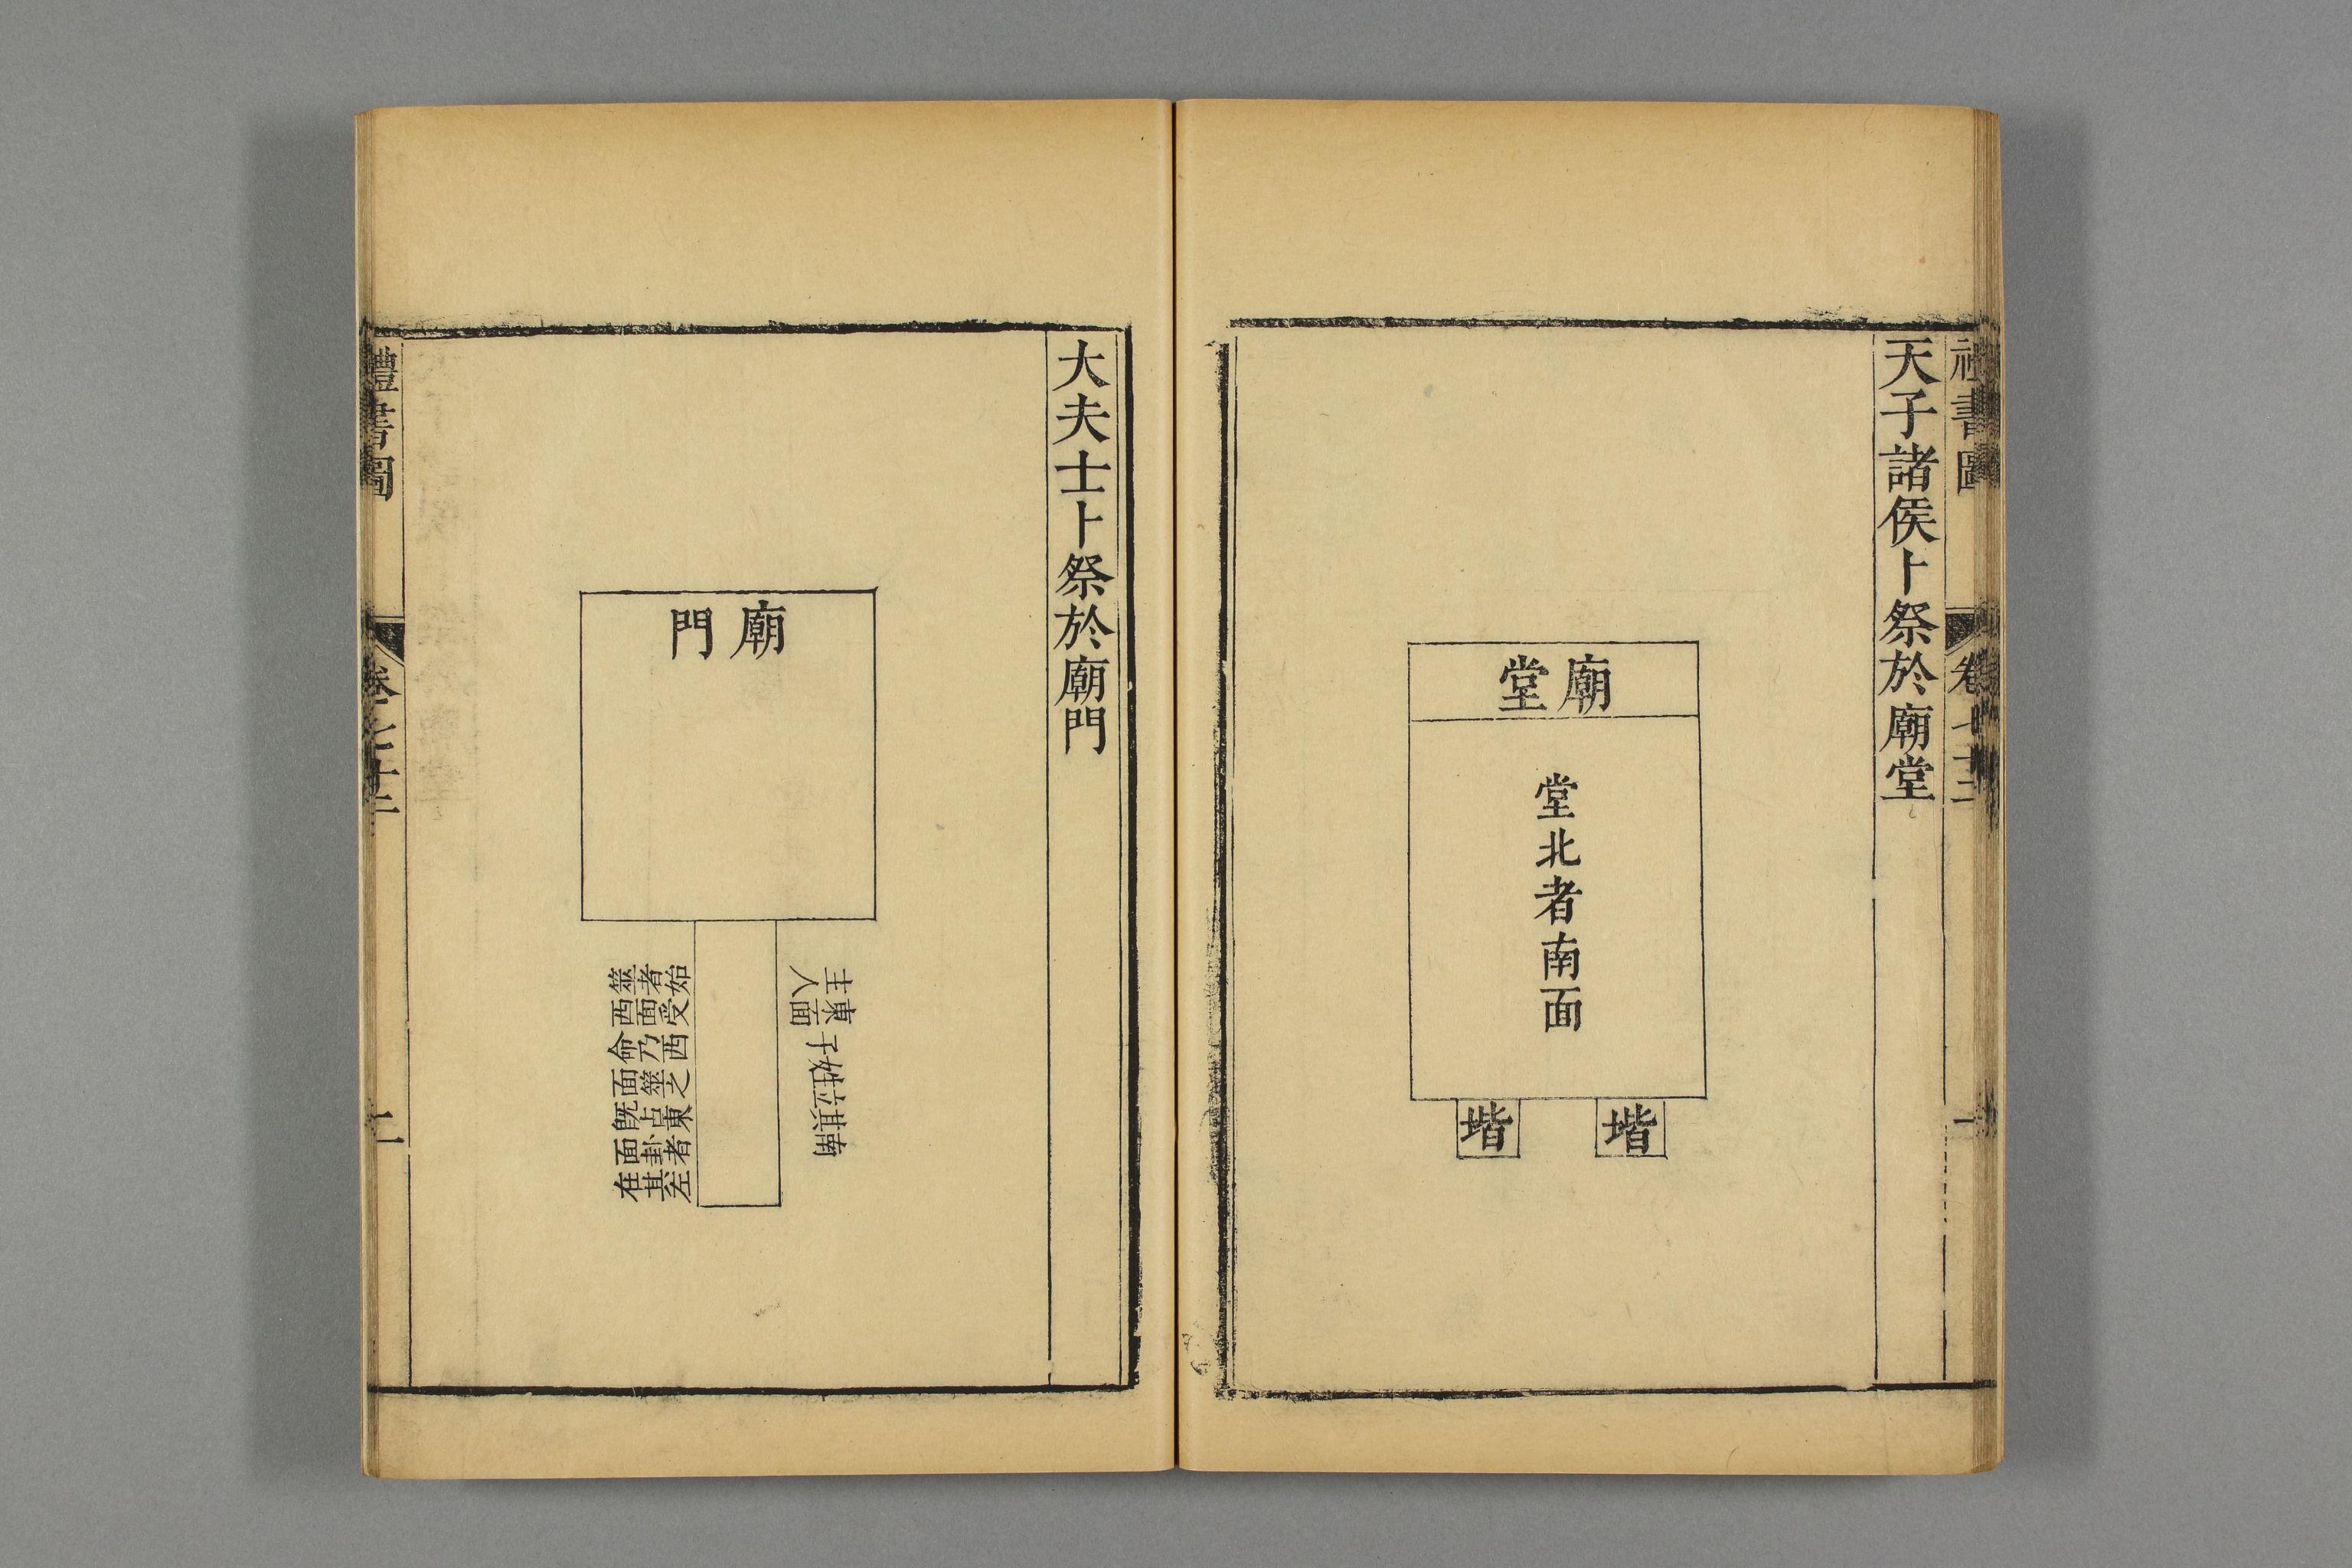 禮書圖
卷七十二
一
天子諸侯卜祭於廟堂
廟堂
堂北者南面
堦
堦
大夫士卜祭於廟門
廟門
主人
東面
子姓立其南
筮者始
西面受
命乃西
面筮之
既占東
面卦者
在其左
禮書圖
卷七十二
二